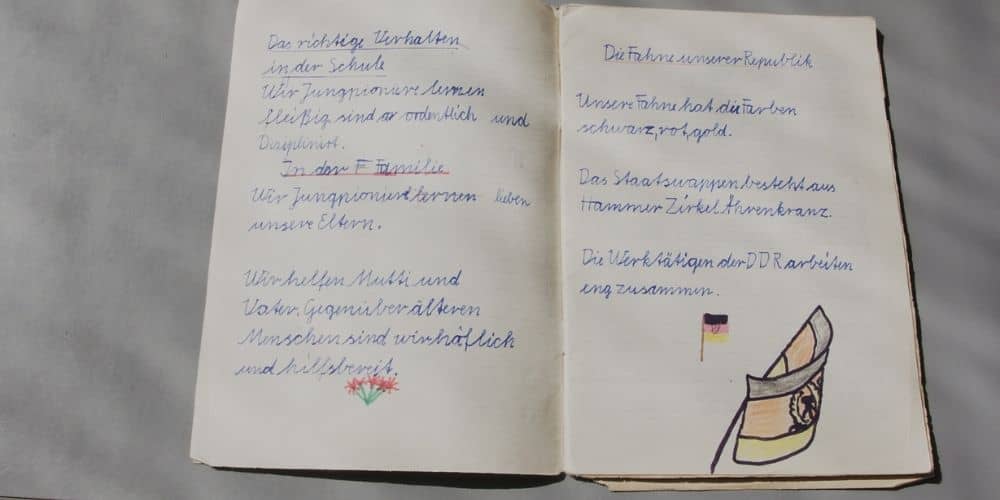 Das richtige Verhalten
in der Schule
Wir Jungpioniere lernen
fleißig sind or ordentlich und
Diszipliniert.
In der F Familie
Wir Jungpioniere lernen lieben
unsere Eltern.
Wir helfen Mutti und
Vater. Gegenüber älteren
Menschen sind wir höflich
und hilfsbereit.
Die Fahne unserer Republik
Unsere Fahne hat die Farben
schwarz, rot, gold.
Das Staatswappen besteht aus
Hammer Zirkel Ährenkranz.
Die Werktätigen der DDR arbeiten
eng zusammen.